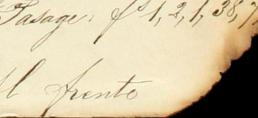 Pasage, fs 1, 2, 1, 38, 7
Al frente